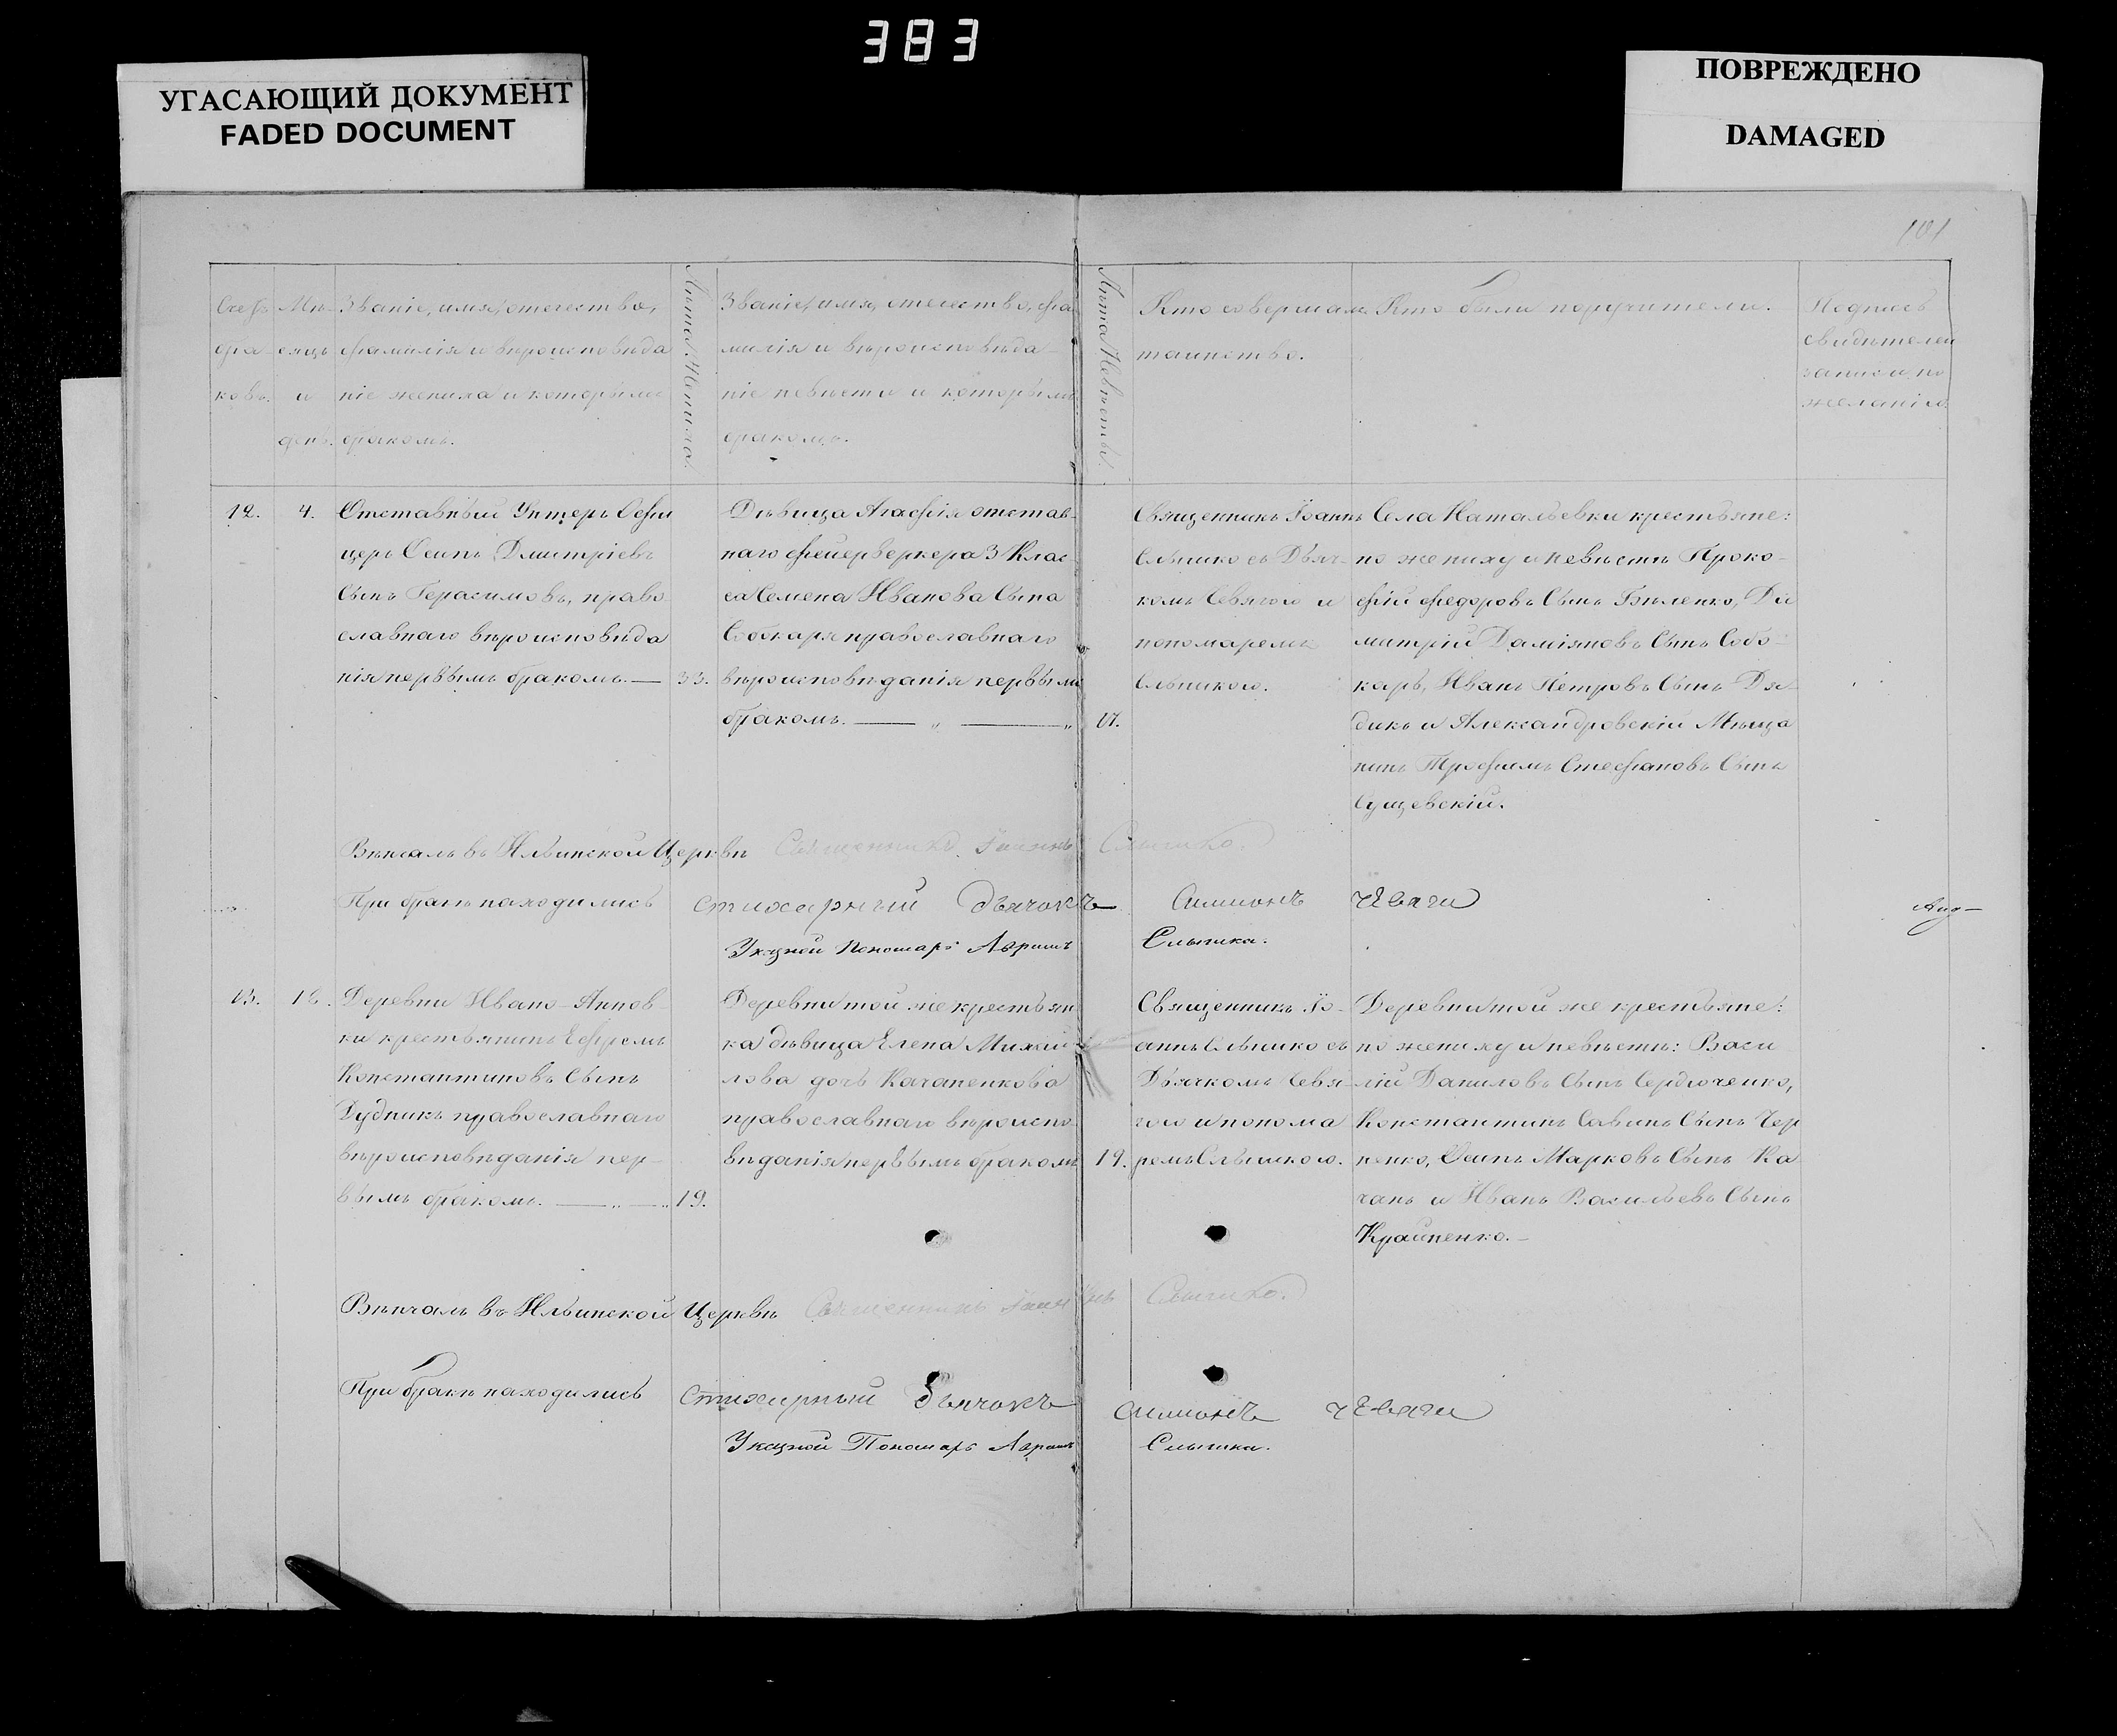 383
УГАСАЮЩИЙ ДОКУМЕНТ
FADED DOCUMENT
ПОВРЕЖДЕНО
DAMAGED
101
Счетъ
бра-
ковъ.
Мѣ-
сяцъ
и
день.
Званіе, имя, отечество,
фамилія и вѣроисповѣда
ніе жениха и которымъ
бракомъ.
Лѣта Жениха.
Званіе, имя, отечество, фа
милія и вѣроисповѣда-
ніе невѣсты и которымъ
бракомъ.
Лѣта Невѣсты.
Кто совершалъ
таинство.
Кто были поручители.
Подпись
свидѣтелей
записи по
желанію.
12.
4.
Отставный Унтеръ Офи
церъ Осипъ Дмитріевъ
Сынъ Герасимовъ, право
славнаго вѣроисповѣда
нія первымъ бракомъ.—
33.
Дѣвица Агафія отстав-
наго фейерверкера 3 Клас-
са Семена Иванова Сына
Собкаря православнаго
вѣроисповѣданія первымъ
бракомъ. — „ — „
17.
Священникъ Іоаннъ
Слышко съ Дьяч-
комъ Чевягою и
пономаремъ
Слышкою.
Села Натальевки крестьяне:
по жениху и невѣстѣ Проко-
фій Федоровъ Сынъ Бѣленко, Ди
митрій Даміяновъ Сынъ Собо-
карь, Иванъ Петровъ Сынъ Дя-
дикъ и Александровскій Мѣща
нинъ Трофимъ Стефановъ Сынъ
Сущевскій.
Вѣнчалъ въ Ильинской Церквѣ Священникъ Іоаннъ Слышко.
При бракѣ находились стихарный дьячокъ Симионъ
Указной Пономарь Слышка.
13.
Деревни Ивано-Аннов-
ки крестьянинъ Ефремъ
Константиновъ Сынъ
Дудникъ православнаго
вѣроисповѣданія пер-
вымъ бракомъ. — „ — „
19.
Деревни той же крестьян
ка дѣвица Елена Михай
лова дочь Качаненкова
православнаго вѣроиспо
вѣданія первымъ бракомъ
19.
Священникъ Іо-
аннъ Слышко съ
Дьячкомъ Чевя-
гою и понома
ремъ Слышкою.
Деревни той же крестьяне:
по жениху и невѣстѣ: Васи
лій Даниловъ Сынъ Сердюченко,
Константинъ Савинъ Сынъ Чер
ненко, Осипъ Марковъ Сынъ Ка
чанъ и Иванъ Васильевъ Сынъ
Крайненко.—
Вѣнчалъ въ Ильинской Церквѣ Священникъ Іоаннъ Слышко.
При бракѣ находились стихарный Дьячокъ Симионъ
Указной Пономарь Слышка.